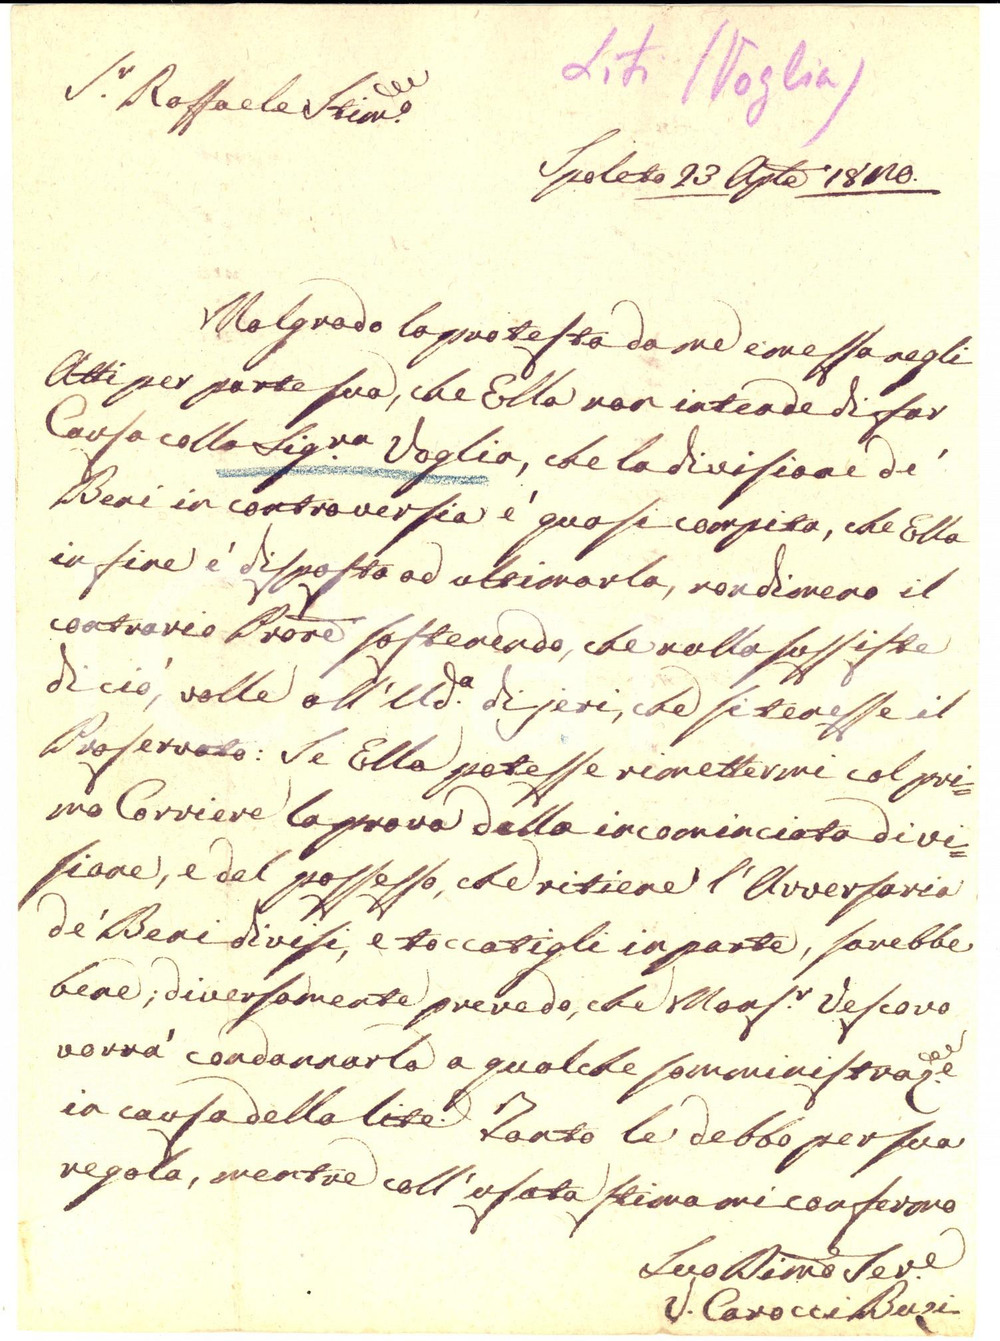 Liti (Voglia)
Sr. Raffaele Stimo.
Spoleto 23 Aple 18
Malgrado la protesta da me emessa negli
Atti per parte sua, che Ella non intende di far
Causa colla Sigra. Voglia, che la divisione de'
Beni in controversia é quasi compita, che Ella
in fine é disposta ad ultimarla, nondimeno il
contrario Prore sostenendo, che nulla sussiste
di ciò, volle all' Uda. di jeri, che si tenesse il
Proservato: Se Ella potesse rimettermi col pri=
mo Corriere la prova della incominciata divi=
sione, e del possesso, che ritiene l'Avversaria
de' Beni divisi, e toccatigli in parte, sarebbe
bene; diversamente prevedo, che Monsr. Vescovo
vorrà condannarla a qualche somministraze.
in causa della lite. Tanto le debbo per sua
regola, mentre coll' usata stima mi confermo
Suo Dimo Sere.
V. Carocci Buzi